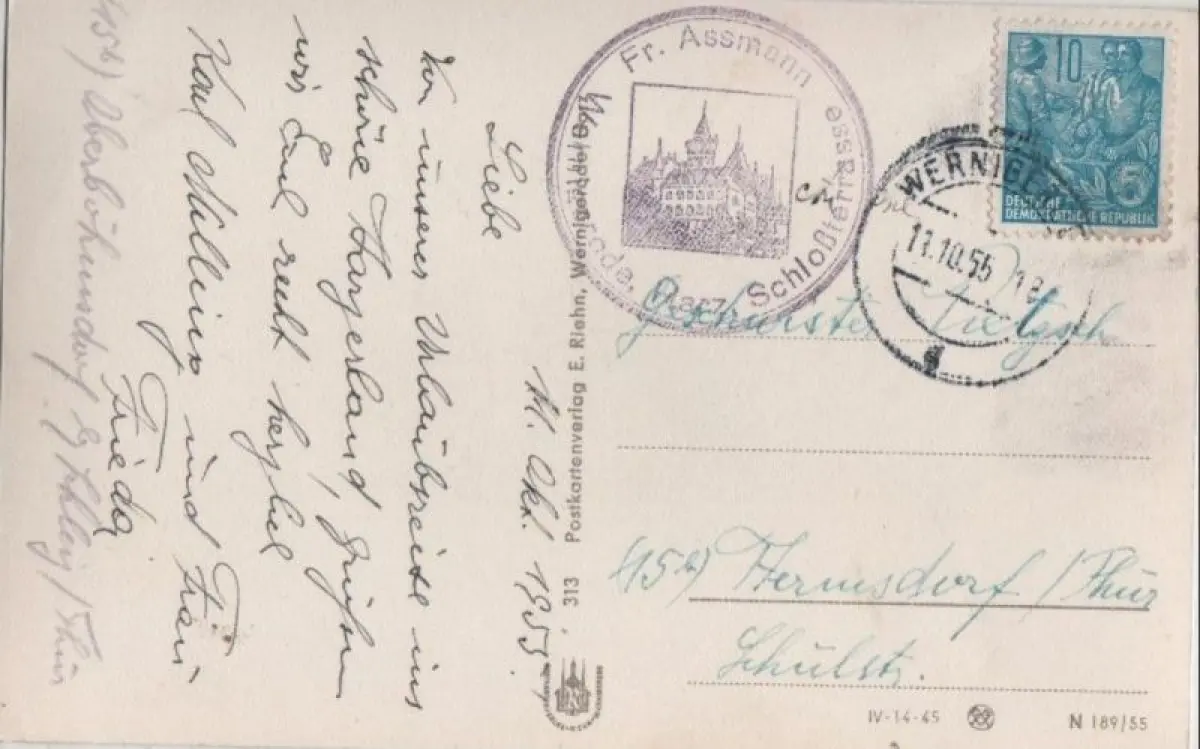 11. Okt. 1955.
Liebe
Von unserer Urlaubsreise ins
schöne Harzerland, grüßen
wir Euch recht herzlich
Karl und Frau
Frieda
15b) Oberböhmsdorf b/ Schleiz/Thür
Fr. Assmann
Schloßterrasse
Wernigerode, Harz
WERNIGE
11.10.55 18
10
5
DEUTSCHE
DEMOKRATISCHE REPUBLIK
Geschwister Pietzsch
15b) Hermsdorf/Thür
Schulstr.
313 Postkartenverlag E. Riehn, Wernigerode
IV-14-45
N 189/55